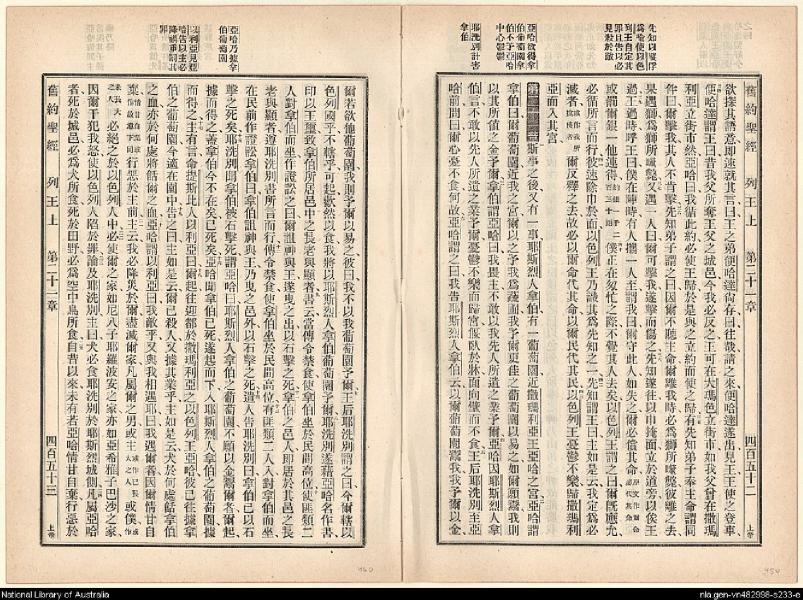 先知以寓浮
舊約聖經 列王上 第二十一章 四百五十二
欲探其語意即速就其言曰王之弟便哈達尚存曰往哉請之來便哈達遂出見王王使之登車
便哈達謂王曰昔我父所奪王父之城邑今我必反之王可在大瑪色立街市如我父曾在撒瑪
利亞立街市然亞哈曰我循此約必使王歸於是與之立約而使之歸有先知弟子奉主命謂同
伴曰爾擊我其人不肯擊先知弟子謂之曰因爾不聽主命爾離我時必為獅所噬斃彼離之去
果遇獅為獅所噬斃又遇一人曰爾可擊我遂擊而傷之先知遂往以巾掩面立於道旁以俟王
過王過時呼王曰僕在陣時有人攜一人至謂我曰爾守此人如失之爾必償其命
或罰爾銀一他連得 僕正在匆忙之際不覺其人去矣以色列王謂之曰爾既應允
必循所言而行彼速除巾於面以色列王乃識其為先知之一先知謂王曰主如是云我定為必
滅者 爾反釋之去故必以爾命代其命以爾民代其民以色列王憂鬱不樂歸撒瑪利
亞而入其宮
亞哈欲得拿
伯葡萄園拿
伯不予亞哈
中心鬱鬱
耶洗別計害
拿伯
第二十一章 斯事之後又有一事耶斯烈人拿伯有一葡萄園近撒瑪利亞王亞哈之宮亞哈謂
拿伯曰爾葡萄園近我之宮爾以之予我為蔬園我予爾更佳之葡萄園以易之如爾願鬻我則
以其所值之金予爾拿伯謂亞哈曰我畏主不敢以我先人所遺之業予爾亞哈因耶斯烈人拿
伯言不敢以先人所遺之業予爾憂鬱不樂而歸宮偃臥於牀面向壁而不食王后耶洗別至亞
哈前問曰爾心憂不食何故亞哈謂之曰我告耶斯烈人拿伯云以爾葡萄園鬻我我予爾以金
亞哈乃據拿
伯葡萄園
以利亞見亞
哈告以主必
降禍重謂其
罪
爾若欲他葡萄園我則予爾以易之彼曰我不以我葡萄園予爾王后耶洗別謂之曰今爾轄以
色列國乎不轄乎可起歡然以食我將以耶斯烈人拿伯葡萄園予爾耶洗別遂藉亞哈名作書
印以王璽致拿伯所居邑中之長老與顯者書云當傳令禁食使拿伯坐於民間高位使匪類二
人對拿伯而坐作證訟之曰爾詛神與王遂曳之出以石擊之死拿伯之邑人即居於其邑之長
老與顯者遵耶洗別書所言而行傳令禁食使拿伯坐於民間高位有匪類二人入對拿伯而坐
在民前作證訟拿伯曰拿伯詛神與王乃曳之邑外以石擊之死遣人告耶洗別曰拿伯已以石
擊之死矣耶洗別聞拿伯被石擊死謂亞哈曰耶斯烈人拿伯之葡萄園不願以金鬻爾者爾起
據而得之蓋拿伯今不在矣已死矣亞哈聞拿伯已死遂起而下入耶斯烈人拿伯之葡萄園據
而得之主有言命提斯此人以利亞曰爾起往迎都於撒瑪利亞之以色列王亞哈彼已往據拿
伯之葡萄園今適在園中告之曰主如是云爾已殺人又據其業乎主如是云犬於何處餂拿伯
之血亦於何處將餂爾之血亞哈謂以利亞曰我敵乎又與我相遇耶曰我遇爾蓋因爾情甘自
棄 行惡於主前主云我必降災於爾盡滅爾家凡屬爾之男或主 或僕
必絕之於以色列人中必使爾之家如尼八子耶羅波安之家亦如亞希雅子巴沙之家
因爾干犯我怒使以色列人陷於罪論及耶洗別主曰犬必食耶洗別於耶斯烈城側凡屬亞哈
者死於城邑必為犬所食死於田野必為空中鳥所食自昔以來未有若亞哈情甘自棄行惡於
舊約聖經 列王上 第二十一章 四百五十三
National Library of Australia
nla.gen-vn482998-s233-e